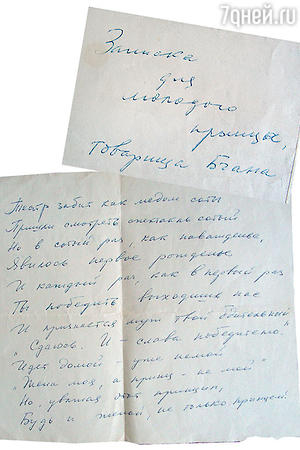 7дней.ru
Записка
для
молодого
принца,
товарища Бгана
Театр забит как медом соты
Пришли смотреть спектакль сотый
Но в сотый раз, как наважденье,
Явилось первое рожденье
И каждый раз, как в первый раз
Ты победить выходишь нас
И признается муж твой бдительный
"Сдаюсь. И - слава победителю."
Идет домой - уже немой
"Жена моя, а принц - не мой"
Но, уважая этот принцип,
Будь и женой, не только принцем!